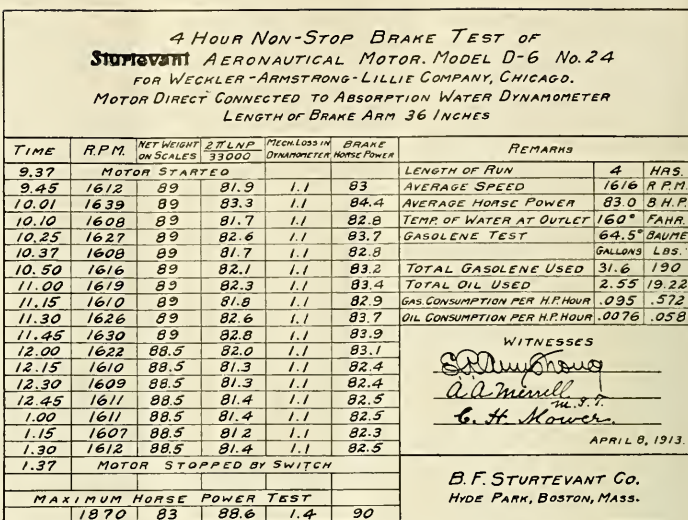 4 HOUR NON-STOP BRAKE TEST OF
Sturtevant AERONAUTICAL MOTOR. MODEL D-6 No. 24
FOR WECKLER-ARMSTRONG-LILLIE COMPANY, CHICAGO.
MOTOR DIRECT CONNECTED TO ABSORPTION WATER DYNAMOMETER
LENGTH OF BRAKE ARM 36 INCHES
TIME R.P.M. NET WEIGHT ON SCALES 2πLNP 33000 MECH. LOSS IN DYNAMOMETER BRAKE HORSE POWER
9.37 MOTOR STARTED
9.45 1612 89 81.9 1.1 83
10.01 1639 89 83.3 1.1 84.4
10.10 1608 89 81.7 1.1 82.8
10.25 1627 89 82.6 1.1 83.7
10.37 1608 89 81.7 1.1 82.8
10.50 1616 89 82.1 1.1 83.2
11.00 1619 89 82.3 1.1 83.4
11.15 1610 89 81.8 1.1 82.9
11.30 1626 89 82.6 1.1 83.7
11.45 1630 89 82.8 1.1 83.9
12.00 1622 88.5 82.0 1.1 83.1
12.15 1610 88.5 81.3 1.1 82.4
12.30 1609 88.5 81.3 1.1 82.4
12.45 1611 88.5 81.4 1.1 82.5
1.00 1611 88.5 81.4 1.1 82.5
1.15 1607 88.5 81 2 1.1 82.3
1.30 1612 88.5 81.4 1.1 82.5
1.37 MOTOR STOPPED BY SWITCH
MAXIMUM HORSE POWER TEST
1870 83 88.6 1.4 90
REMARKS
LENGTH OF RUN 4 HRS.
AVERAGE SPEED 1616 R.P.M.
AVERAGE HORSE POWER 83.0 B.H.P.
TEMP. OF WATER AT OUTLET 160° FAHR.
GASOLENE TEST 64.5° BAUME
GALLONS LBS.
TOTAL GASOLENE USED 31.6 190
TOTAL OIL USED 2.55 19.22
GAS. CONSUMPTION PER H.P. HOUR .095 .572
OIL CONSUMPTION PER H.P. HOUR .0076 .058
WITNESSES
Armstrong
A. A. Merrill
M.I.T.
C. H. Mower.
APRIL 8, 1913.
B. F. STURTEVANT CO.
HYDE PARK, BOSTON, MASS.